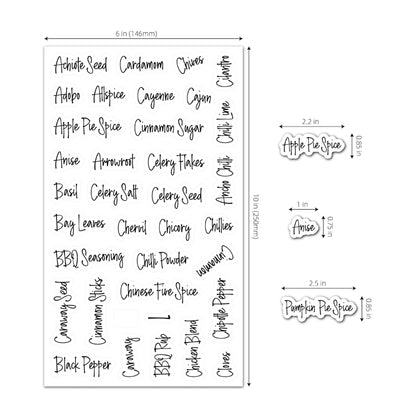 6 in (146mm)
Achiote Seed Cardamom Chives Cilantro
Adobo Allspice Cayenne Cajun
Apple Pie Spice Cinnamon Sugar Chili Lime
Anise Arrowroot Celery Flakes Ancho Chili
Basil Celery Salt Celery Seed
Bay Leaves Chervil Chicory Chillies
BBQ Seasoning Chili Powder Cinnamon
Caraway Seed Cinnamon Sticks Chinese Five Spice Chipotle Pepper
Black Pepper Caraway BBQ Rub Chicken Blend Cloves
10 in (250mm)
2.2 in
Apple Pie Spice
0.85 in
1 in
Anise
0.75 in
2.5 in
Pumpkin Pie Spice
0.85 in